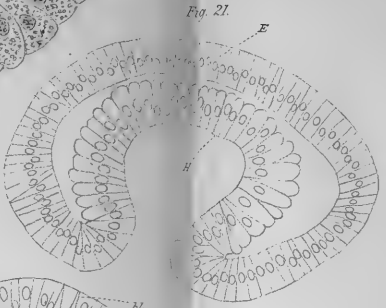 Fig. 21.
E
H